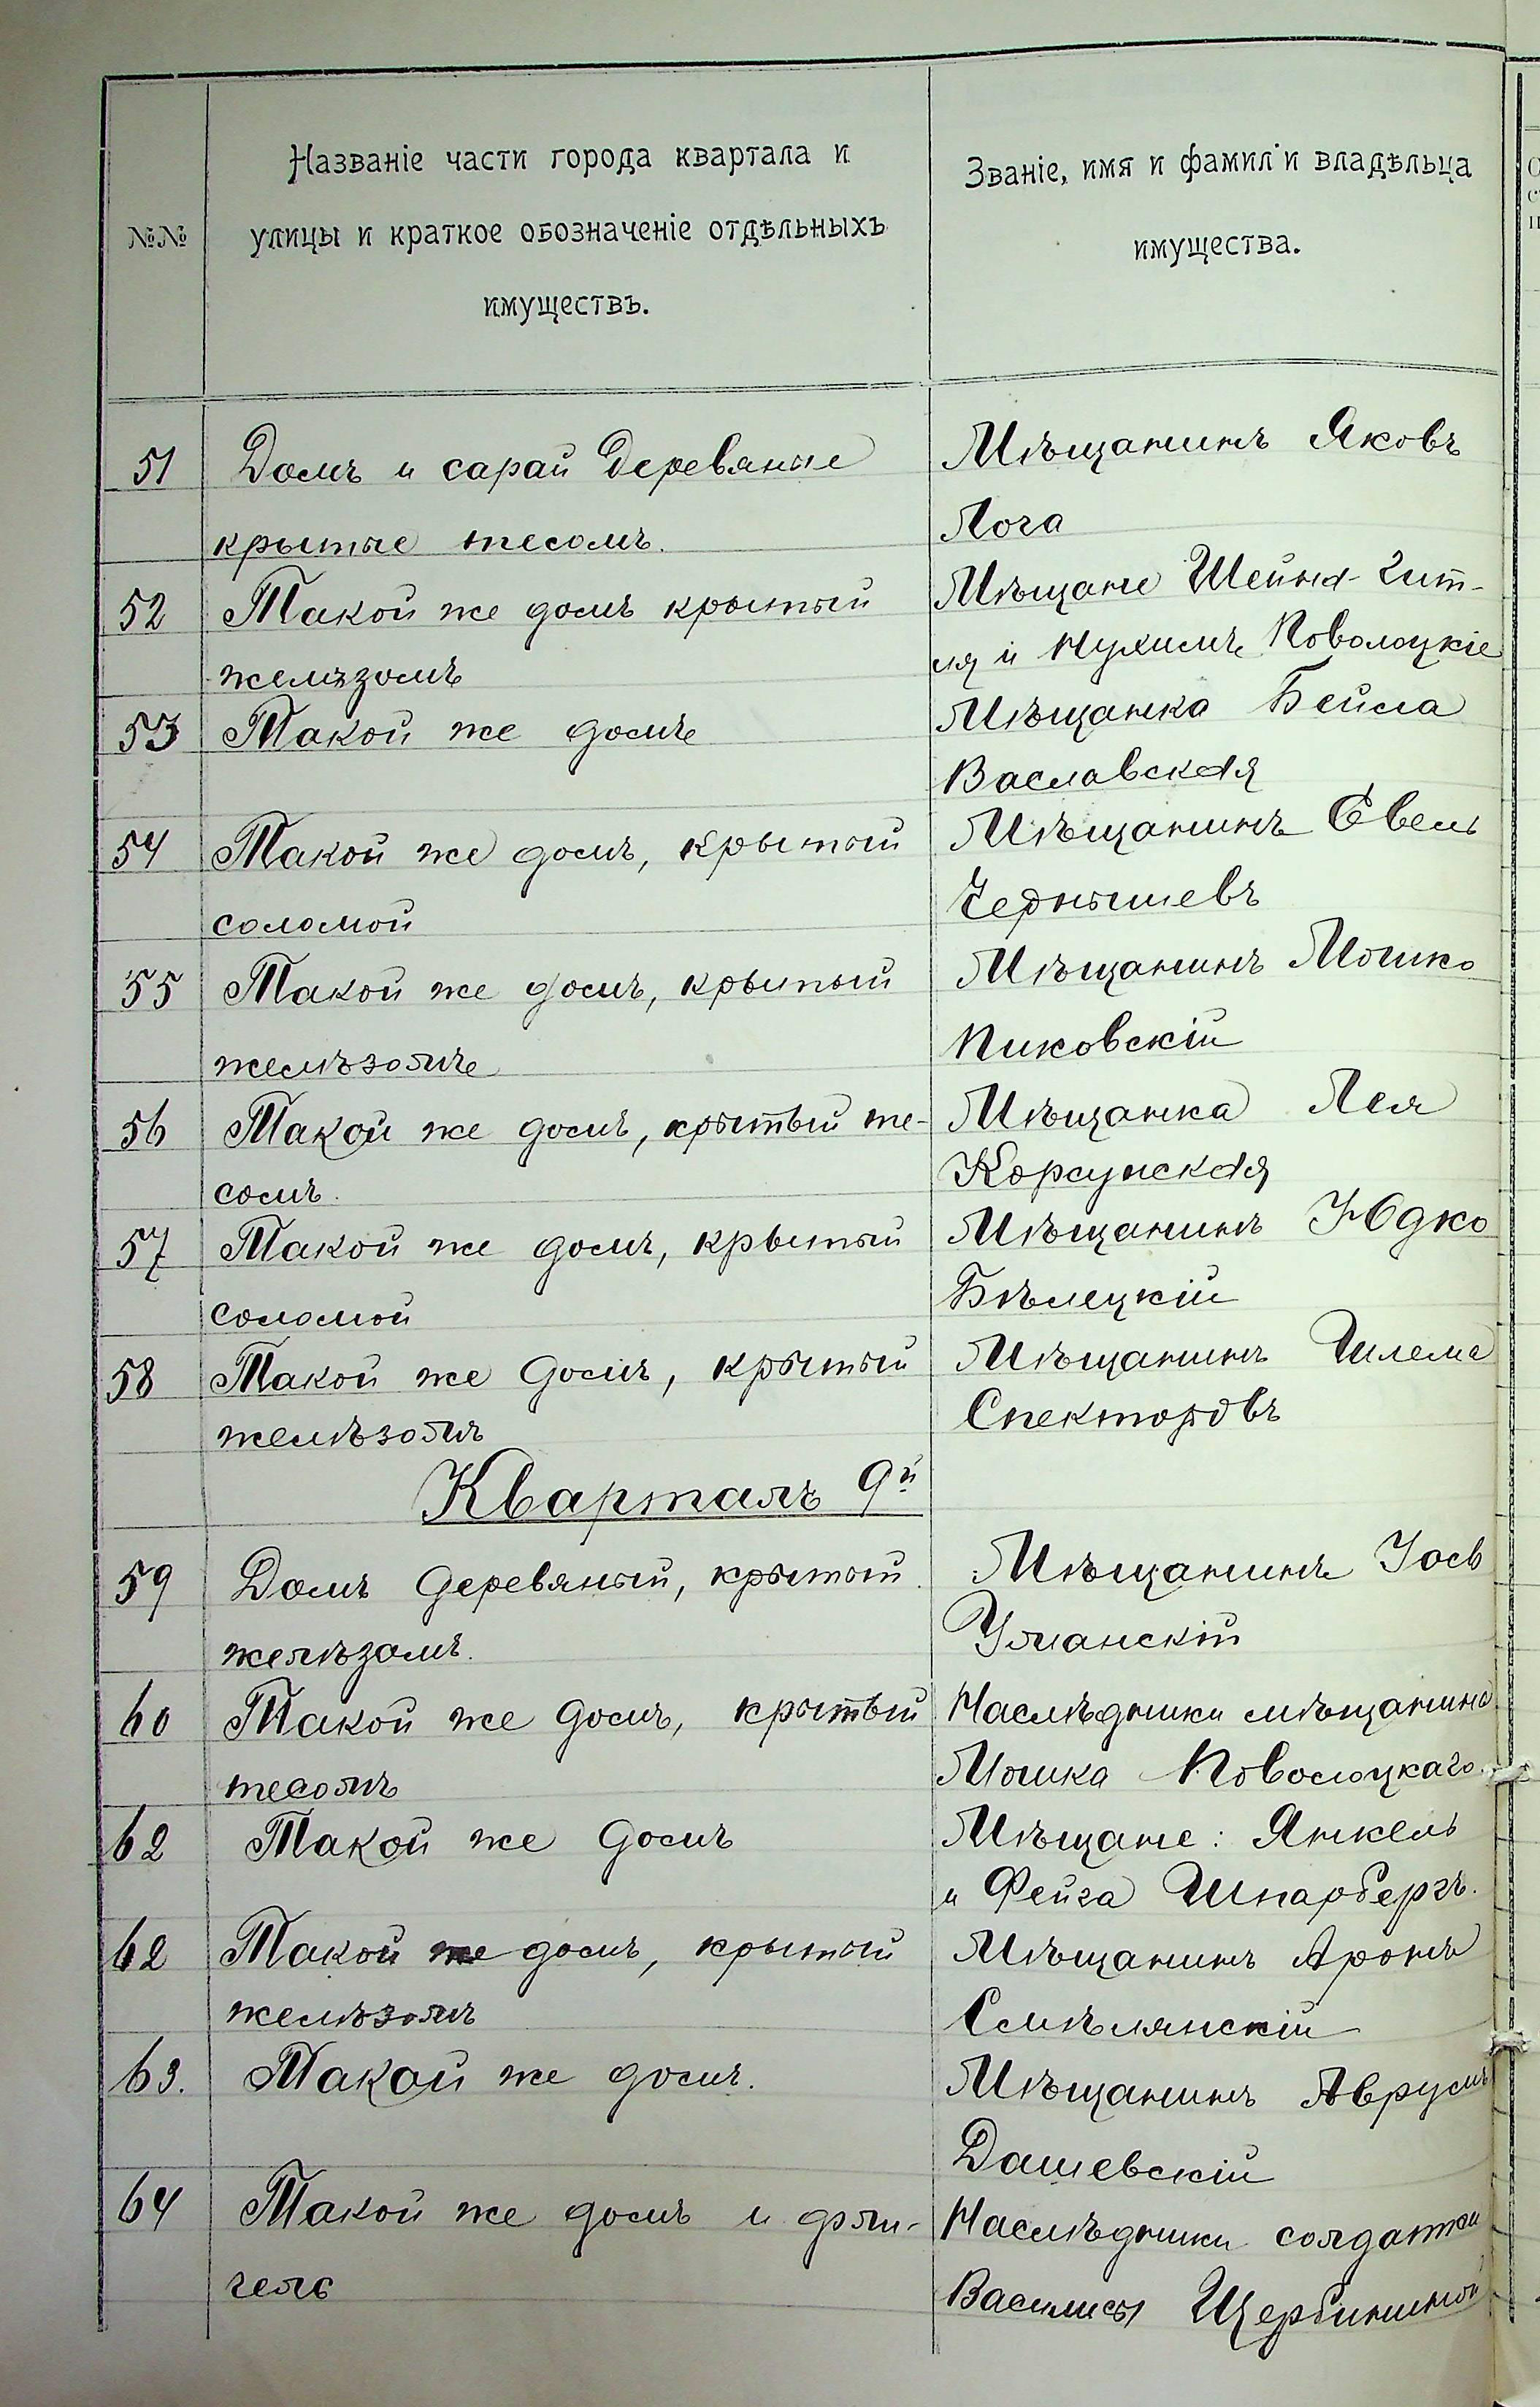 №№
Названіе части города квартала и
улицы и краткое обозначеніе отдѣльныхъ
имуществъ.
Званіе, имя и фамил и владѣльца
имущества.
51 Домъ и сарай деревяные Мѣщанинъ Яковъ
крытые тесомъ. Лога
52 Такой же домъ крытый Мѣщане Шейна-Гит-
желѣзомъ ля и Нухимъ Поволоцкіе
53 Такой же домъ Мѣщанка Бейла
Ваславская
54 Такой же домъ, крытый Мѣщанинъ Евель
соломой Чернышевъ
55 Такой же домъ, крытый Мѣщанинъ Мошко
желѣзомъ Пиковскій
56 Такой же домъ, крытый те- Мѣщанка Лея
сомъ. Корсунская
57 Такой же домъ, крытый Мѣщанинъ Юдко
соломой Бѣлецкій
58 Такой же домъ, крытый Мѣщанинъ Шлема
желѣзомъ Спекторовъ
Кварталъ 9й
59 Домъ деревяный, крытый Мѣщанинъ Іось
желѣзомъ. Уманскій
60 Такой же домъ, крытый Наслѣдники мѣщанина
тесомъ Мошка Поволоцкаго.
62 Такой же домъ Мѣщане: Янкель
и Фейга Шпарбергъ.
62 Такой же домъ, крытый Мѣщанинъ Аронъ
желѣзомъ Смѣлянскій
63. Такой же домъ. Мѣщанинъ Аврумъ
Дашевскій
64 Такой же домъ и фли- Наслѣдники солдатки
гель Василисы Щербининой